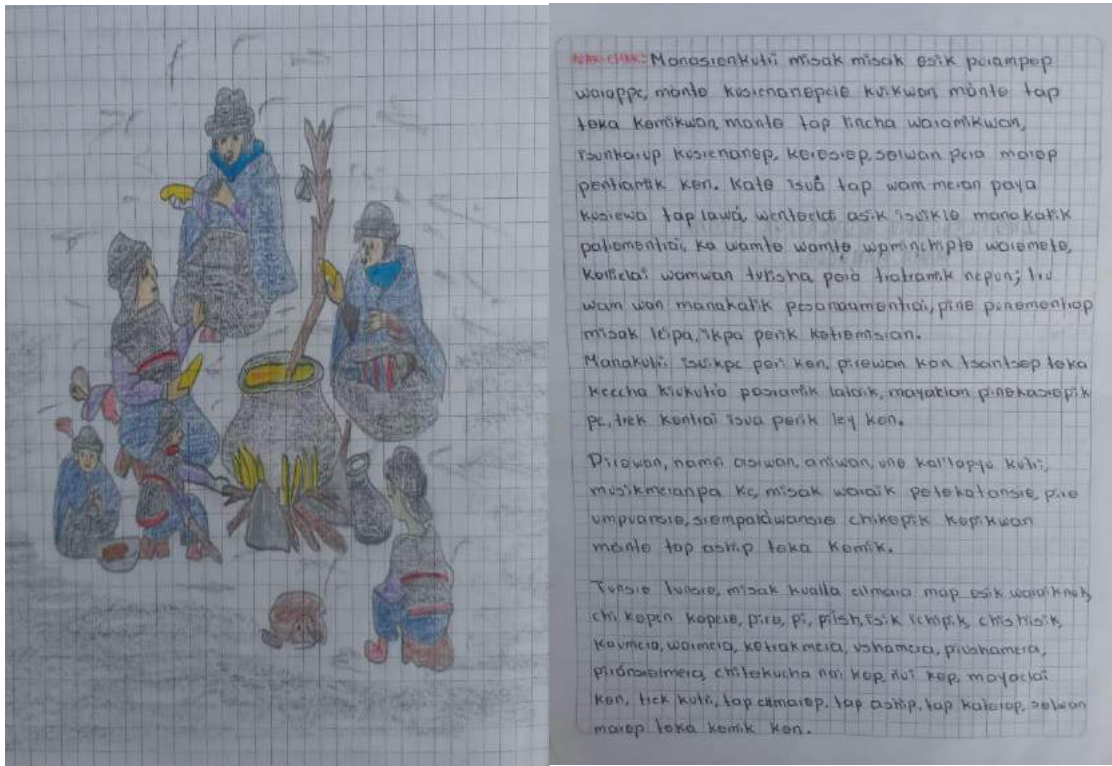 NAK CHAK: Manasrenkutri misak misak osik pɵrampop
warappe, manto kusrenanɵpelɵ kuikwan manto tap
tɵka kɵmikwan, manto tap lincha waramikwan,
isunkurup kusrenanɵp, kɵrɵsrɵp, sɵlwan pɵra marɵp
pentramik kɵn. Katɵ isuá tap wam mɵran paya
kusrewa tap lawá, wentɵelai asik isuiklɵ manakatik
palɵmɵntrai, ka wamtɵ wamtɵ, wɵminchiptɵ warɵmɵtɵ,
kɵllielai wamwan turisha pɵra tratramik nepun; tru
wam wan manakatik pesannamɵntrai, pine pinɵmɵntrap
misak leipa, ikpa pɵrik kɵtrɵmisran.
Manakutri isuikpe pɵri kɵn, pirɵwan kɵn tsantsep tɵka
kɵccha kiɵkutrɵ pasramik lataik, mayaklan pinɵkasrɵpik
pe, trek kɵntrai isua pɵrik ley kɵn.
Pirɵwan, namɵi asrwan, anwan, unɵ kallapyɵ kutri,
musikmeranpa kɵ, misak waraik petɵkatansrɵ, pirɵ
umpuansrɵ, srɵmpalawansrɵ chikɵpik kɵpikwan
manto tap aship tɵka kɵmik.
Tunsrɵ tunsrɵ, misak kualla ellmarɵ map osik waraiknuk,
chi kɵpen kɵpelɵ, pirɵ, pi, pilsh, isik ichipik, chishisik,
kaumera, warmera, kɵtrakmera, ushamera, piushamera,
pirɵnsrɵlmera, chitɵkucha nai kɵp, ñui kɵp, mayaelai
kɵn, trek kutri, tap ellmarɵp, tap aship, tap katɵrɵp, sɵlwan
marɵp tɵka kɵmik kɵn.